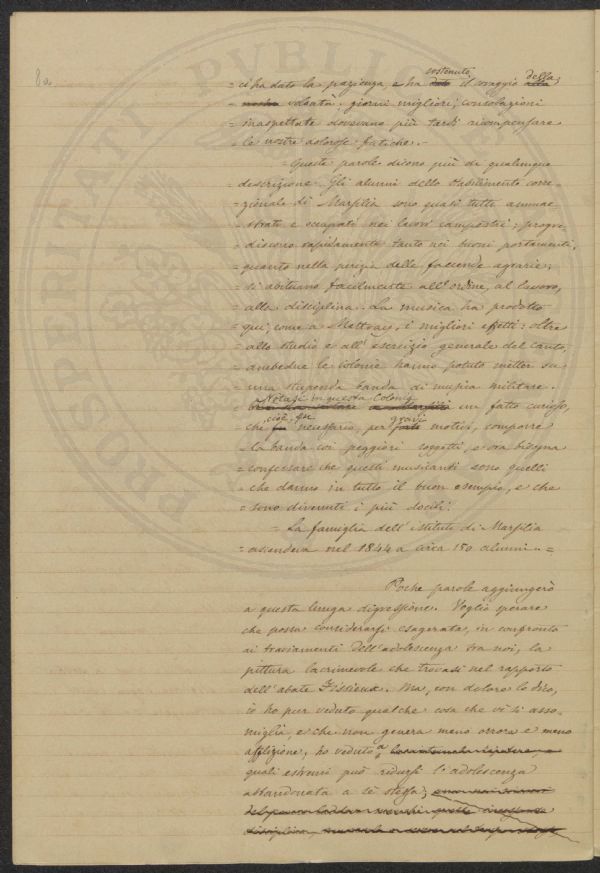 8a
PROSPERITATI PVBLICAE
= ci ha dato la pazienza, e ha dato sostenuto il coraggio alla della
= nostra volontà; giorni migliori, consolazioni
= inaspettate dovevano più tardi ricompensare
= le nostre dolorose fatiche. =
= Queste parole dicono più di qualunque
= descrizione. Gli alunni dello stabilimento corre-
= zionale di Marsilia sono quasi tutti ammae
= strati e occupati nei lavori campestri; progre
= discono rapidamente tanto nei buoni portamenti,
= quanto nella perizia delle faccende agrarie;
= si abituano facilmente all'ordine, al lavoro,
= alla disciplina. La musica ha prodotto
= qui, come a Mettray, i migliori effetti: oltre
= allo studio e all'esercizio generale del canto,
= ambedue le colonie hanno potuto metter su
= una stupenda banda di musica militare.
= Notasi in questa Colonia a Marsilia un fatto curioso,
= che cioè, fu necessario, per forti gravi motivi, comporre
= la banda coi peggiori soggetti, e ora bisogna
= confessare che questi musicanti sono quelli
= che danno in tutto il buon esempio, e che
= sono divenuti i più docili.
= La famiglia dell'istituto di Marsilia
= ascendeva nel 1844 a circa 150 alunni. =
Poche parole aggiungerò
a questa lunga digressione. Voglio sperare
che possa considerarsi esagerata, in confronto
ai traviamenti dell'adolescenza tra noi, la
pittura lacrimevole che trovasi nel rapporto
dell'abate Fissieux. Ma, con dolore lo dico,
io ho pur veduto qualche cosa che vi si asso-
miglia, e che non genera meno orrore e meno
afflizione; ho veduto a
quali estremi può ridursi l'adolescenza
abbandonata a se stessa;